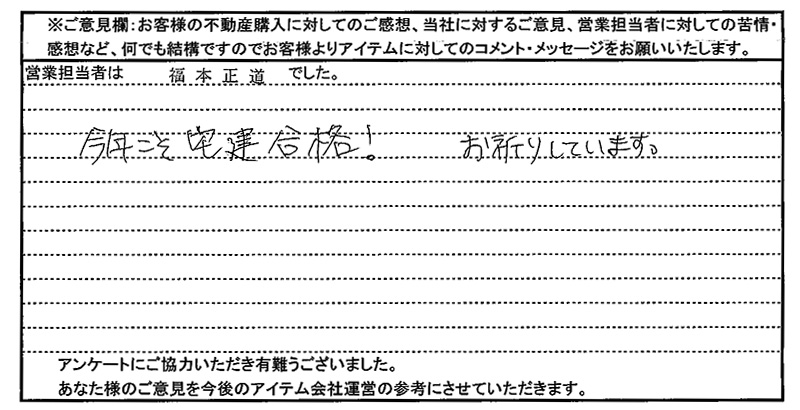 ※ご意見欄：お客様の不動産購入に対してのご感想、当社に対するご意見、営業担当者に対しての苦情・
感想など、何でも結構ですのでお客様よりアイテムに対してのコメント・メッセージをお願いいたします。
営業担当者は　福本正道　でした。
今年こそ宅建合格！　お祈りしています。
アンケートにご協力いただき有難うございました。
あなた様のご意見を今後のアイテム会社運営の参考にさせていただきます。